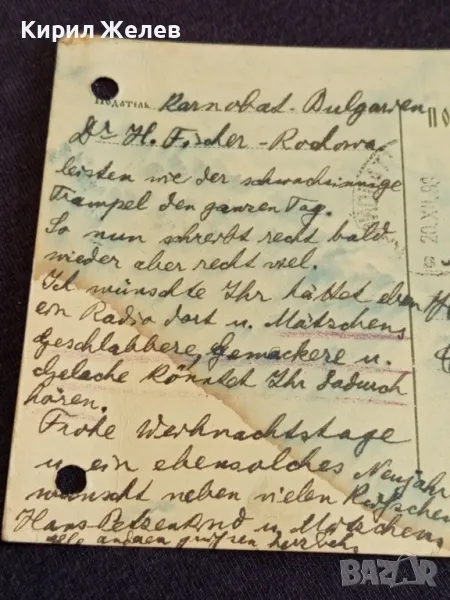 Кирил Желев
Податель Karnobat - Bulgarien
Dr H. Fischer - Rochowa
leisten wie der schwachsinnige
Trampel den ganzen Tag.
So nun schreibt recht bald
wieder aber recht viel.
Ich wünschte Ihr hättet eben
ein Radio dort u. Mätschens
Geschlabbere, Gemackere u.
Gelache könntet Ihr dadurch
hören.
Frohe Weihnachtstage
u. ein ebensolches Neujahr
wünscht neben vielen
Hans- u. Mätschens
alle anderen grüßen herzlich
ПО
20.XII.
BAZAR